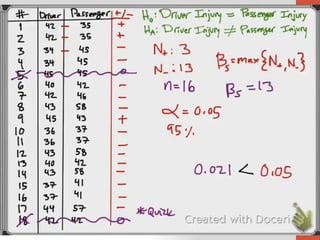 # Driver Passenger +/-
1 42 - 35 +
2 42 - 35 +
3 34 - 45 -
4 34 45 -
5 45 45 0
6 40 42 -
7 42 46 -
8 43 58 -
9 45 43 +
10 36 37 -
11 36 37 -
12 43 58 -
13 40 42 -
14 43 58 -
15 37 41 -
16 37 41 -
17 44 57 -
18 42 42 0
Ho: Driver Injury = Passenger Injury
HA: Driver Injury ≠ Passenger Injury
N+: 3
N-: 13
Bs = max{N+, N-}
n=16 Bs = 13
α = 0.05
95%
0.021 < 0.05
*Quick
Created with Doceri